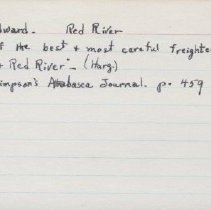 dward. Red River
f the best & most careful freighte
Red River" - (Harg.)
impson's Athabasca Journal. p. 459